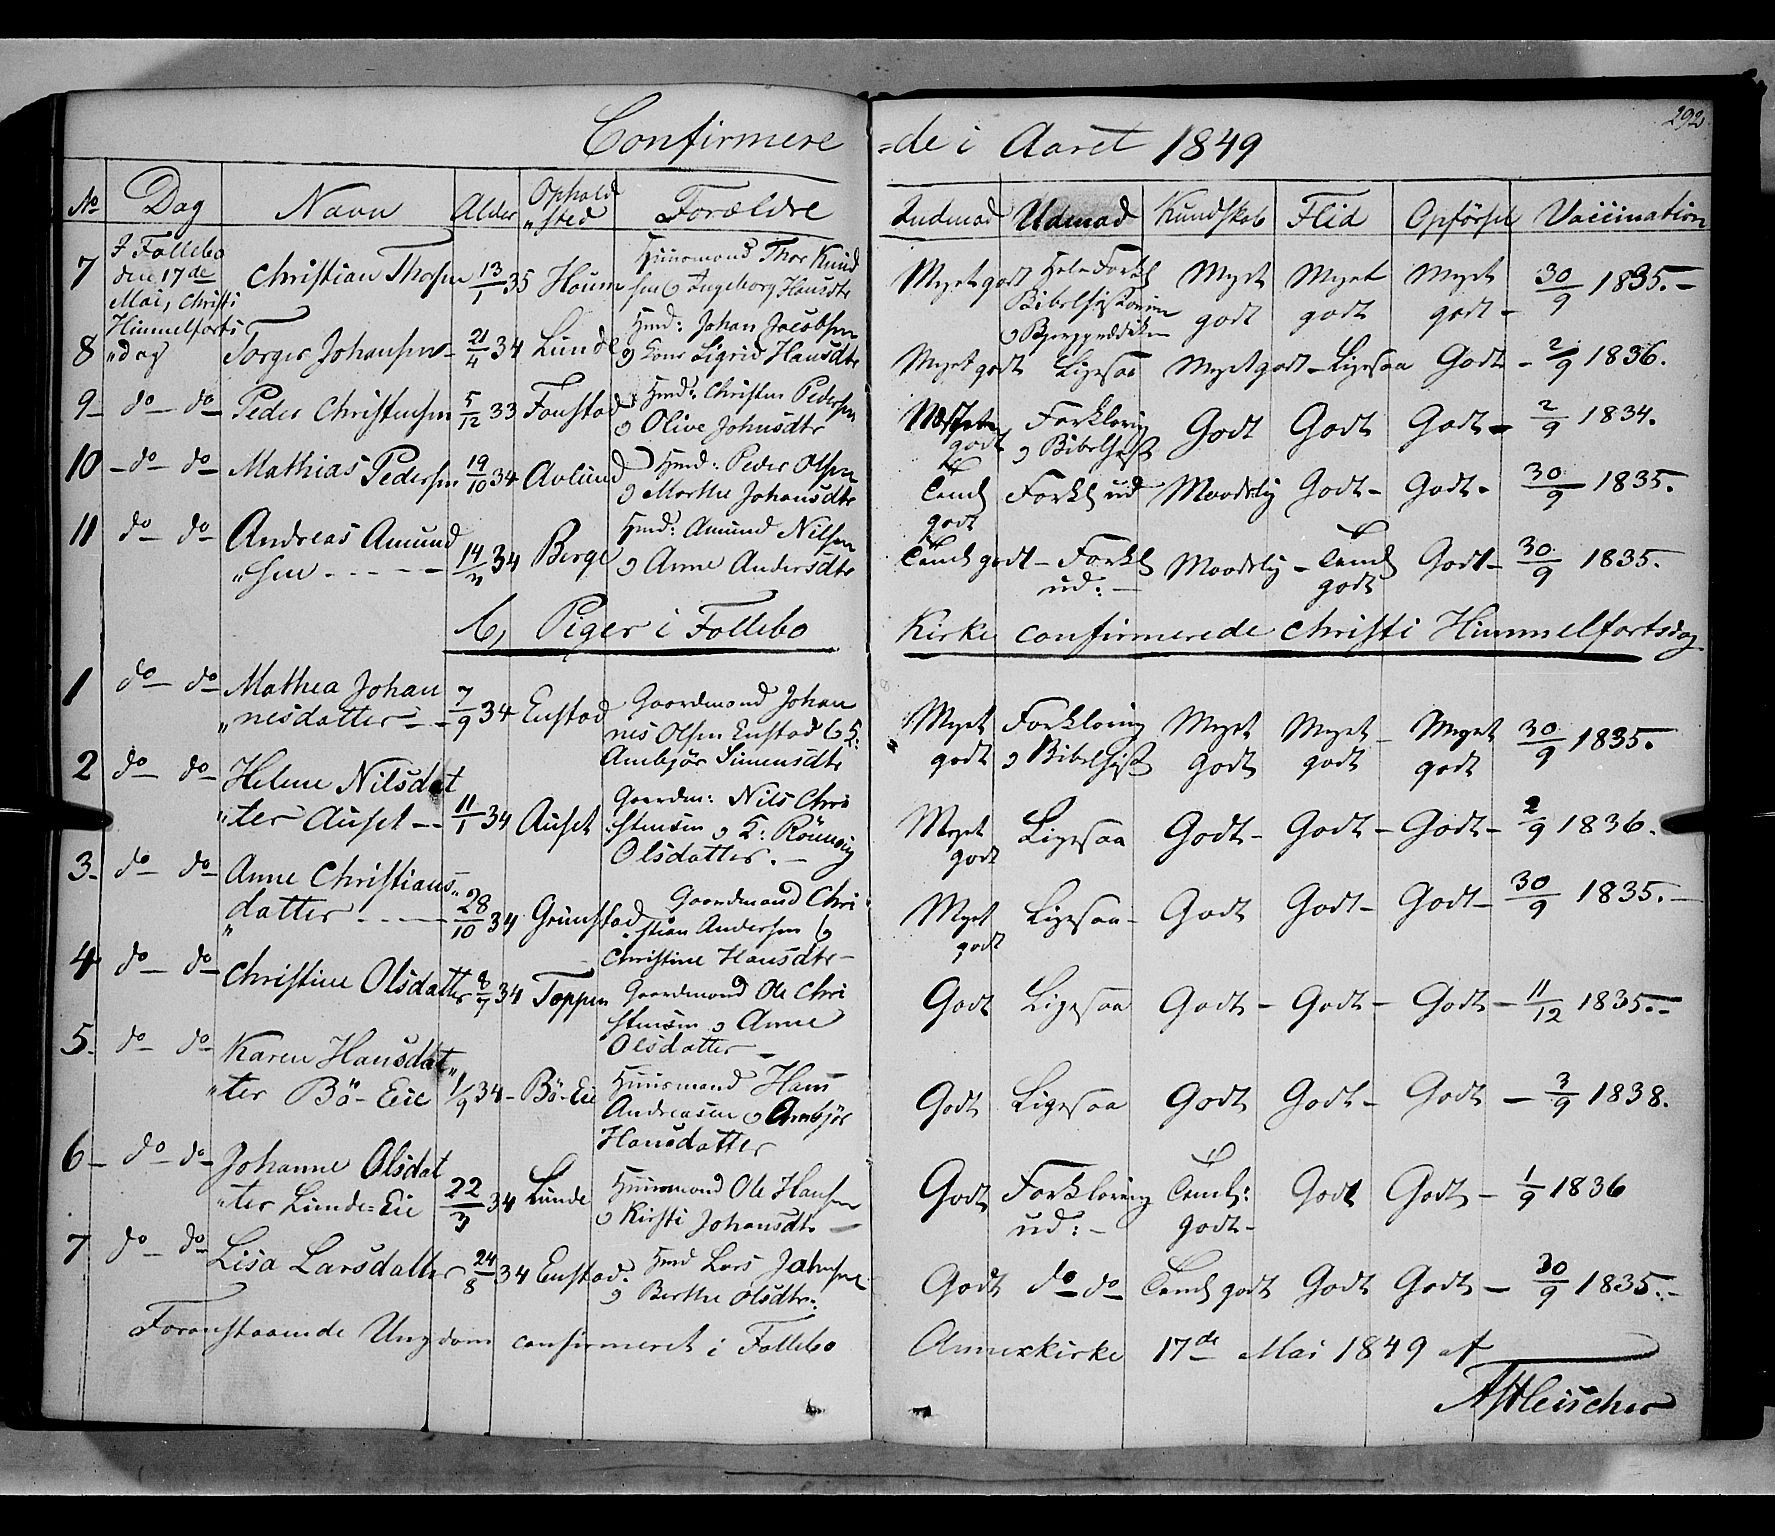 292
Confirmere =de i Aaret 1849
No Dag Navn Alder Ophold „sted Forældre Indenad Udenad Kundskab Flid Opførsel Vaccination
7 I Follebo den 17de Mai, Christi Himmelfarts „dag Christian Thorsen 13/1 35 Houm Huusmand Thor Knud sen og Ingeborg Hansdtr Meget godt Hele Forkl Bibelhistorien og Meget godt Meget godt Meget godt - 30/9 1835. -
8 Torger Johansen - 21/4 34 Lunde Hmd: Johan Jacobsen og Kone Sigrid Hansdtr Meget godt Ligesaa Meget godt - Ligesaa Godt - 2/9 1836.
9 - do - do - Peder Christensen 5/12 33 Fonstad Hmd: Christen Pedersen og Olive Johnsdtr godt Forklaring og Bibelhist Godt Godt Godt - 2/9 1834.
10 - do - do - Mathias Pedersen 19/10 34 Avlund Hmd: Peder Olsen og Marthe Johansdtr Teml godt Forkl ud Maadelig Godt - Godt - 30/9 1835.
11 do - do - Andreas Amund „sen - - - - - 14/3 34 Berge Hmd: Amund Nilsen og Anne Andersdtr Teml godt - Forkl ud: - Maadelig - Teml godt Godt - 30/9 1835.
b, Piger i Follebo Kirke confirmerede Christi Himmelfartsdag
1 do - do - Mathea Johan „nesdatter - - 7/9 34 Enstad Gaardmand Johan nes Olsen Enstad og K: Ambjør Simensdtr Meget godt Forklaring og Bibelhist Meget godt Meget godt Meget godt 30/9 1835.
2 do - do - Helene Nilsdat „ter Auset - - 11/1 34 Auset Gaardm: Nils Chri stensen og K: Rönnog Olsdatter. - Meget godt Ligesaa Godt - Godt - Godt - 2/9 1836.
3 - do - do - Anne Christians „datter - - - - 28/10 34 Grimstad Gaardmand Chri stian Andersen og Christine Hansdtr - Meget godt Ligesaa - Godt Godt - Godt - 30/9 1835. -
4 do - do - Christine Olsdatter 8/7 34 Toppen Gaardmand Ole Chri stensen og Anne Olsdatter - Godt Ligesaa Godt - Godt - Godt - 11/12 1835. -
5 - do - do - Karen Hansdat „ter Bö-Eie 1/9 34 - Bö-Eie Huusmand Hans Andreasen og Ambjör Hansdatter Godt Ligesaa Godt Godt - Godt - 3/9 1838.
6 - do - do - Johanne Olsdat „ter Lunde=Eie 22/3 34 Lunde Huusmand Ole Hansen og Kirsti Johansdtr - Godt Forklaring ud: - Teml: godt - Godt Godt - 1/9 1836
7 do - do Lisa Larsdatter 24/8 34 Enstad. Hmd Lars Johnsen og Berthe Olsdtr. Godt do - do - Teml godt Godt Godt - 30/9 1835. -
Foranstaaende Ungdom confirmeret i Follebo Annexkirke 17de Mai 1849 af